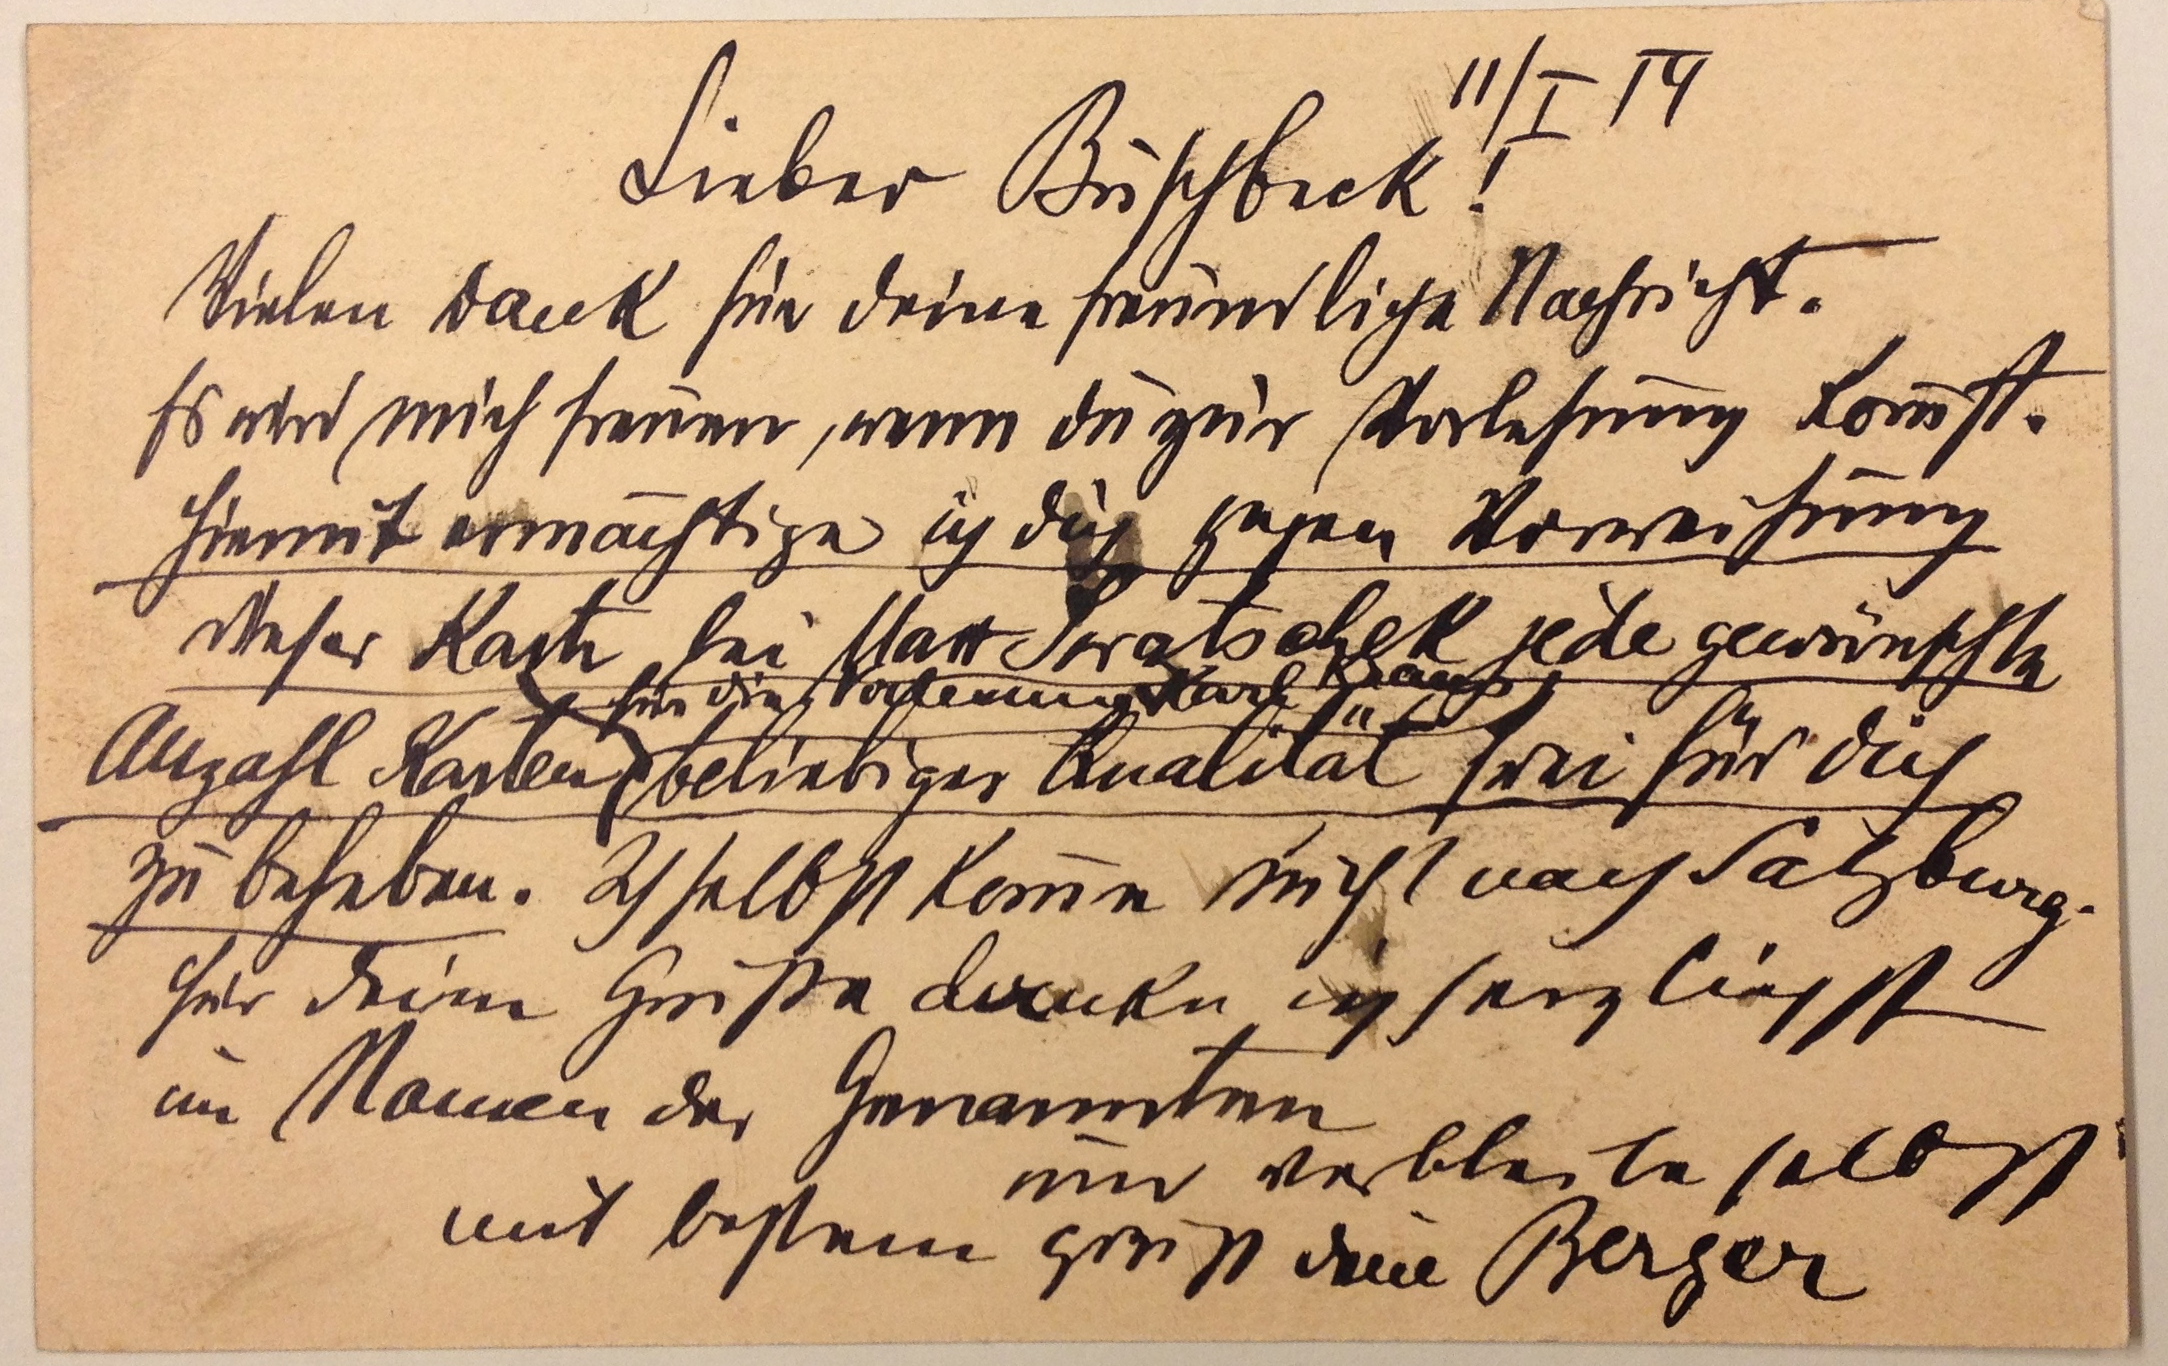 11/I 14
Lieber Buschbeck!
Vielen Dank für deine freundliche Nachricht.
Es wird mich freuen, wenn du zur Vorlesung kom̄st.
Hiemit ermächtige ich dich gegen Vorweisung
dieser Karte bei Matt Swatschek jede gewünschte
für die Vorlesung Karl Kraus
Anzahl Karten beliebiger Qualität frei für dich
zu beheben. Ich selbst kom̄e nicht nach Salzburg.
Für deine Grüße danke ich herzlichst
im Namen der Genannten
und verbleibe selbst
mit bestem Gruß dein Berger